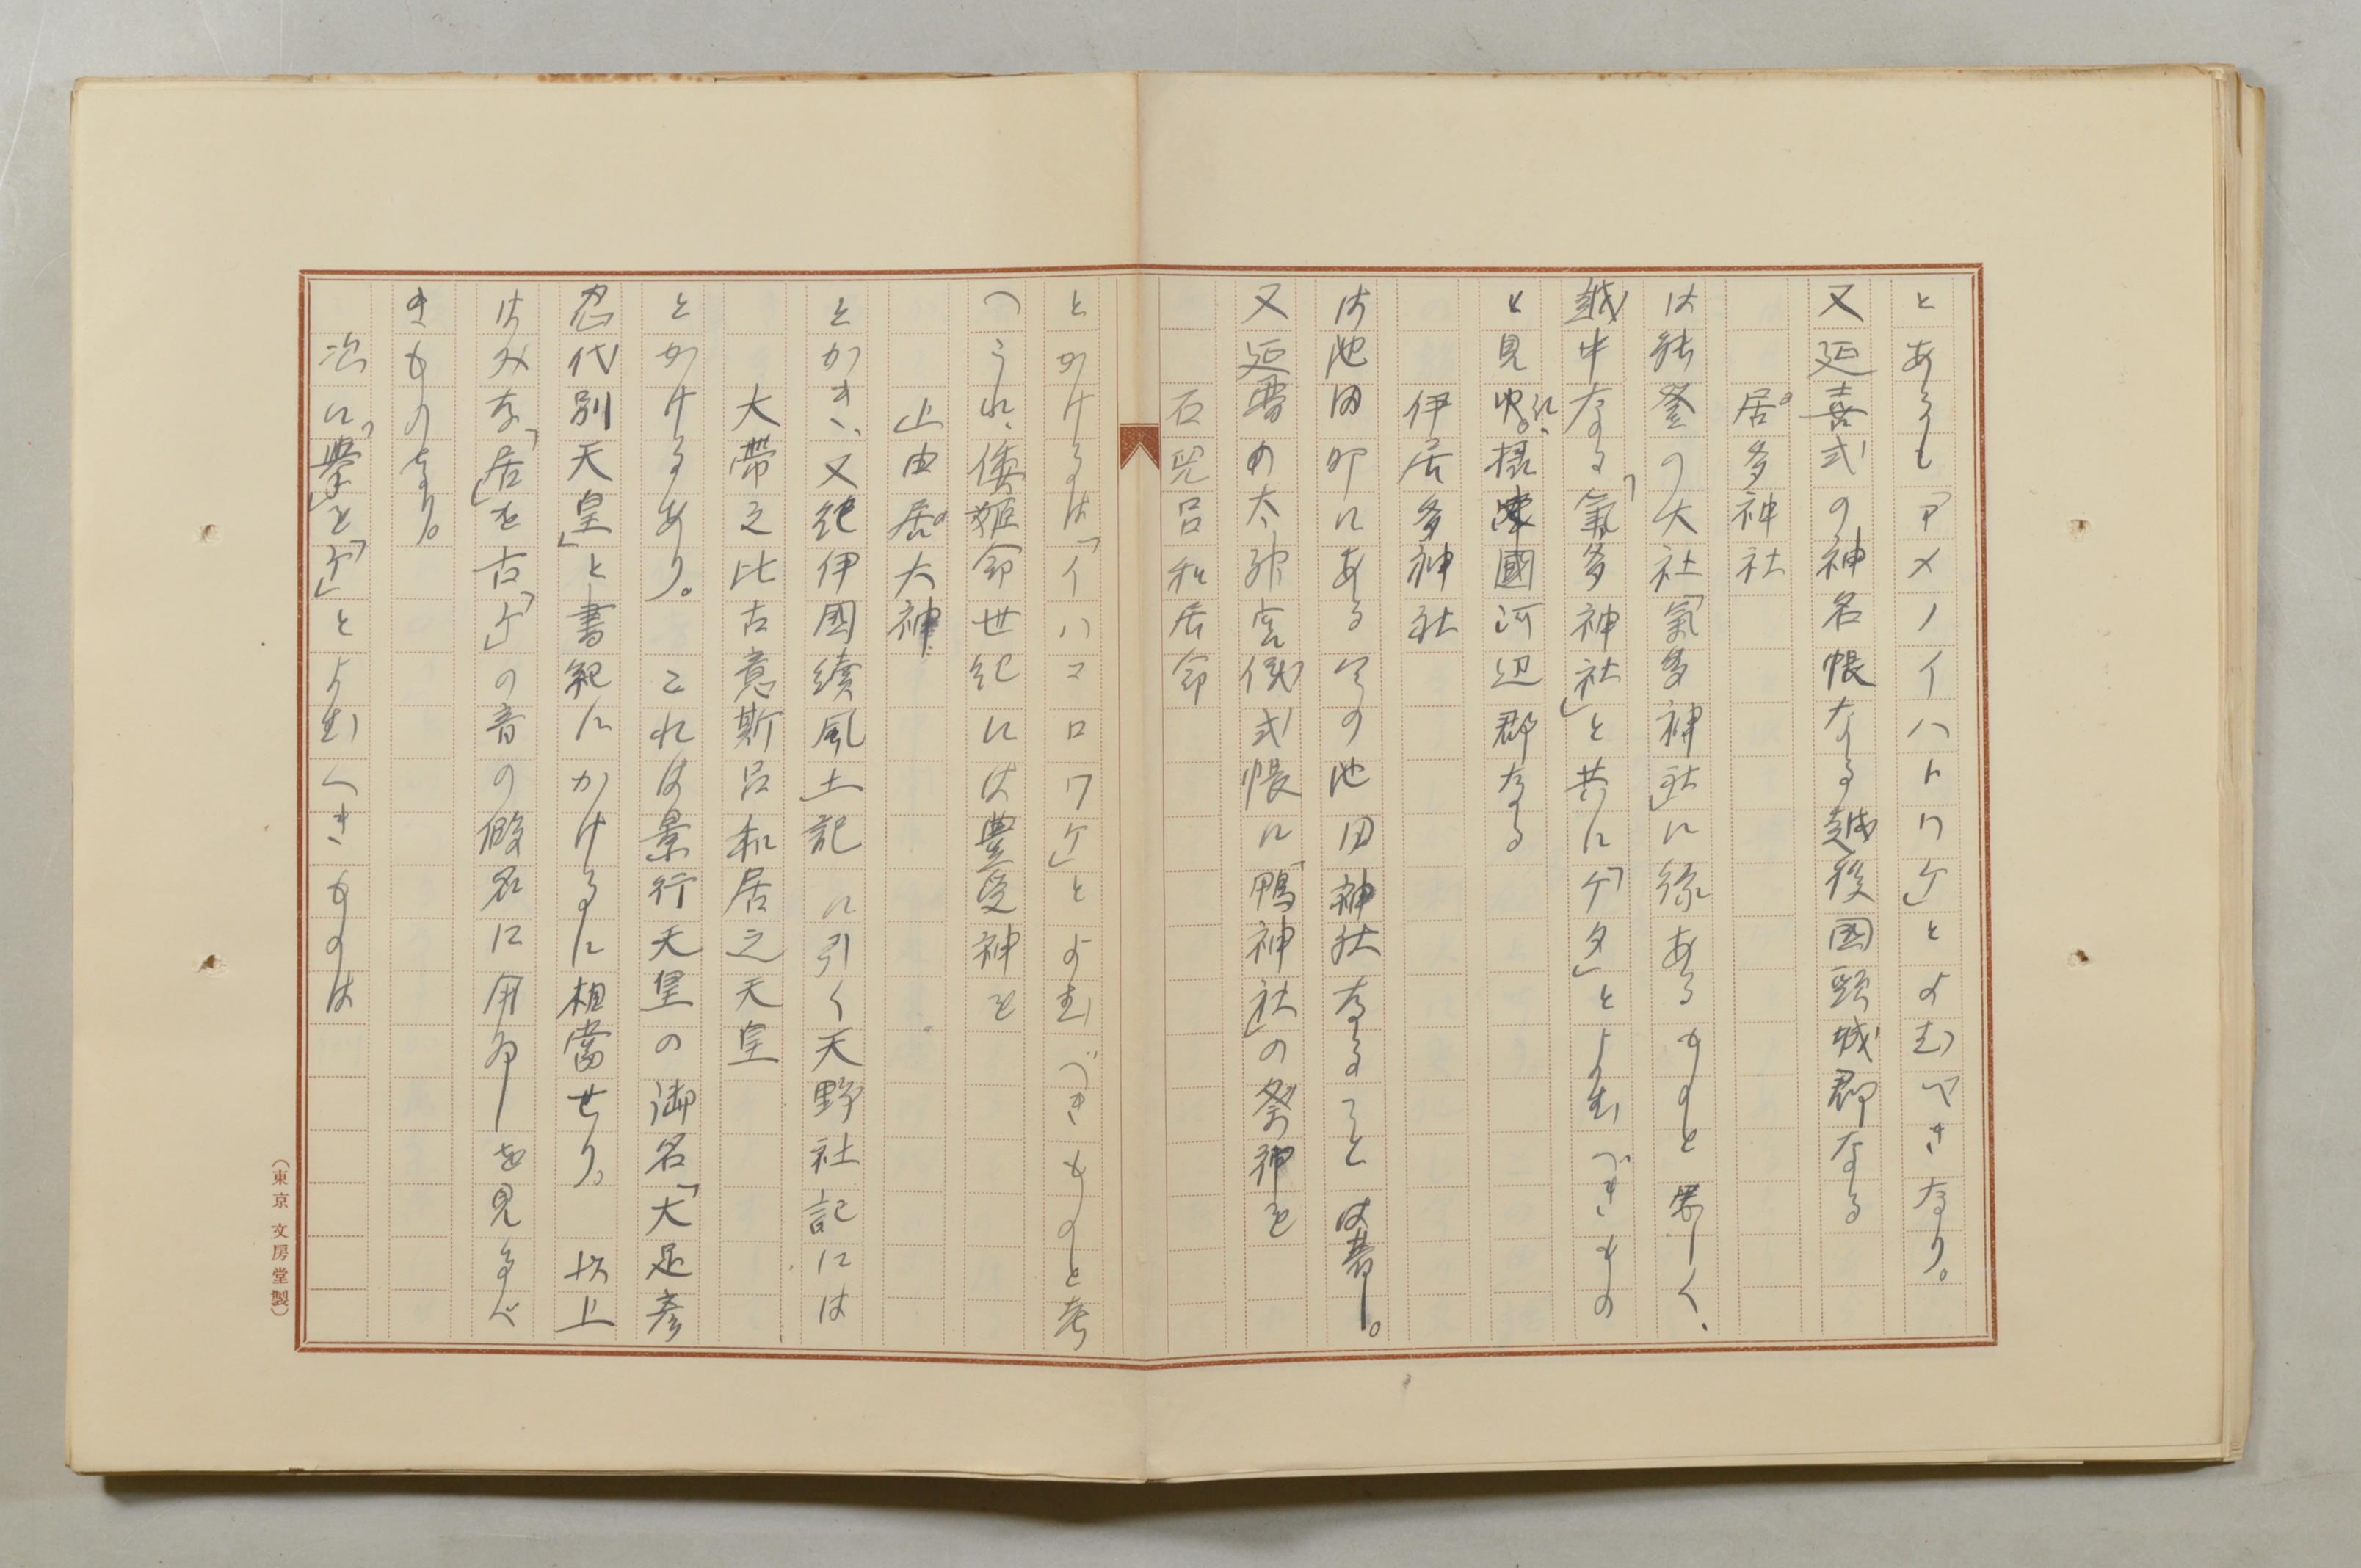 とあるも「アメノイハトワケ」とよむべきなり。
又延喜式の神名帳なる越後国頸城郡なる
居多神社
は能登の大社「氣多神社」に縁あるものと思しく、
越中なる「氣多神社」と共に「ケタ」とよむべきもの
と見ゆれ、攝津國河辺郡なる
伊居多神社
は池田町にある今の池田神社なることは著し。
又延曆の太神宮儀式帳に「鴨神社」の祭神を
石己呂和居命
とかけるは「イハコロワケ」とよむべきものと考
へられ、倭姫命世紀には豊受神を
止由居大神
とかき、又紀伊國續風土記に引く天野社記には
大帶之比古意斯呂和居之天皇
とかけるあり。これは景行天皇の御名「大足彦
忍代別天皇」と書紀にかけるに相當せり。以上
はみな「居」を古「ケ」の音の假名に用ゐしを見るべ
きものなり。
次に「擧」を「ケ」とよむへきものは
（東京 文房堂製）